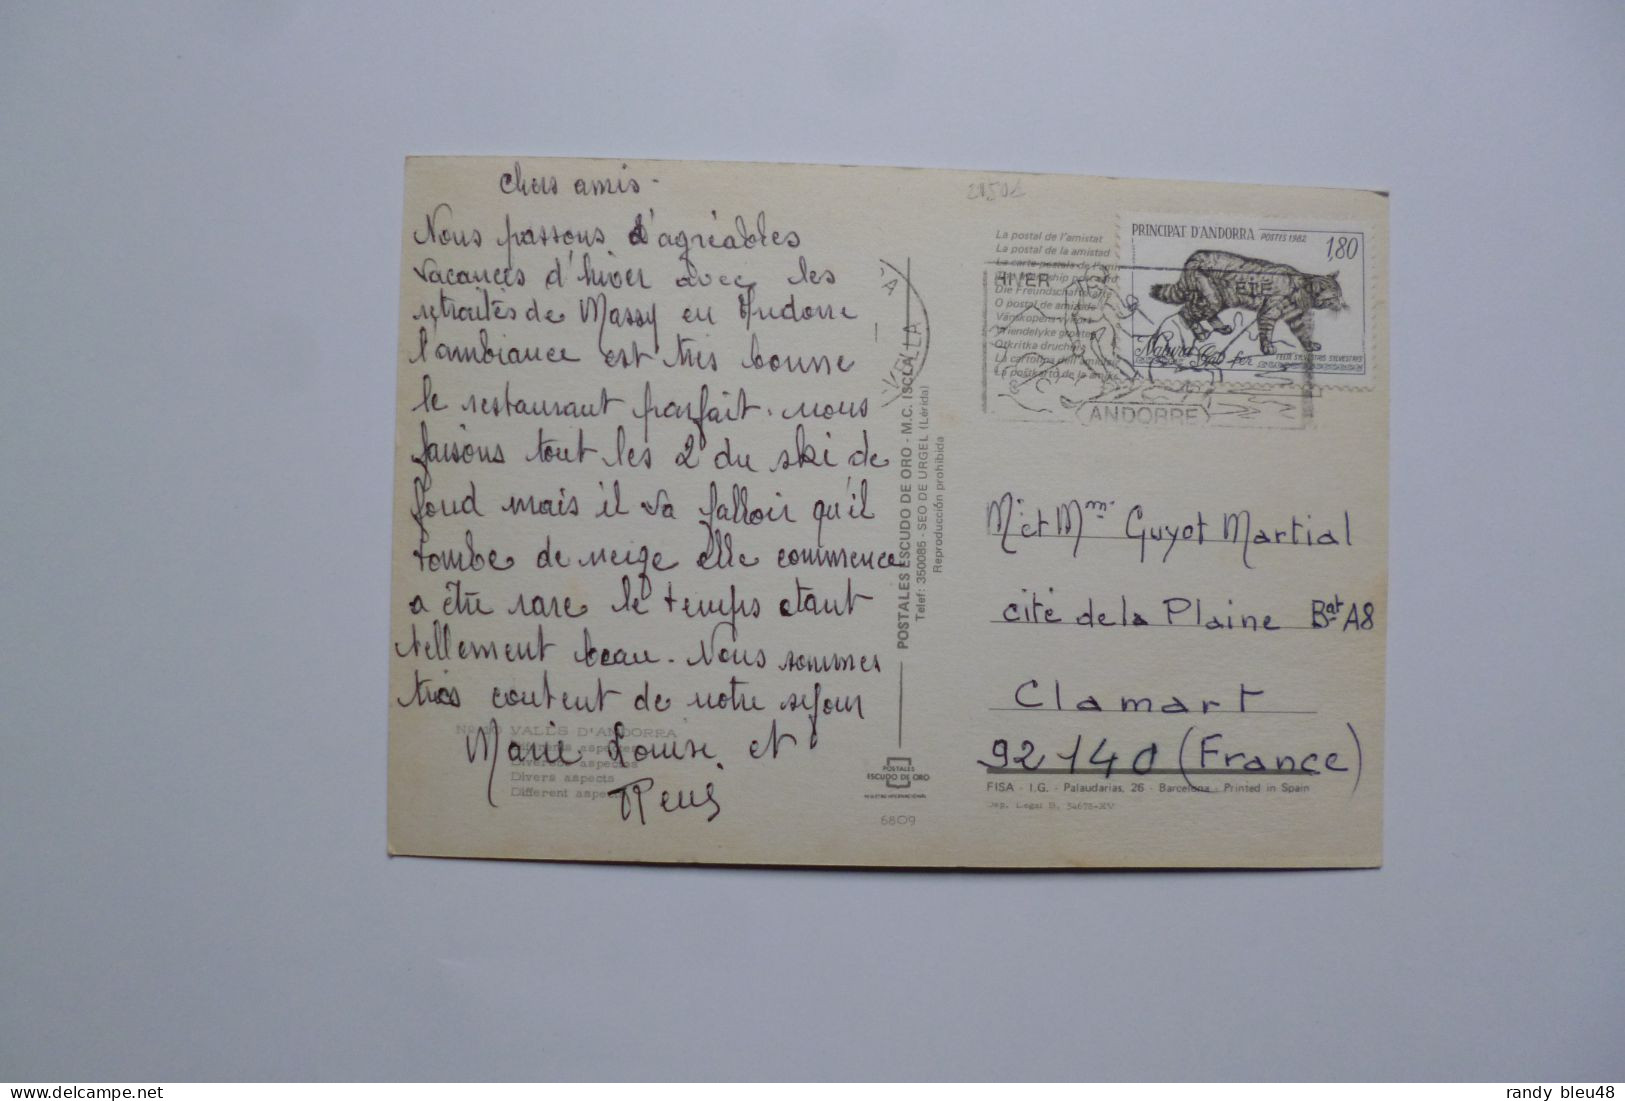 chers amis -
Nous passons d'agréables
vacances d'hiver avec les
retraités de Massy en Andorre
l'ambiance est très bonne
le restaurant parfait. nous
faisons tout les 2 du ski de
fond mais il va falloir qu'il
tombe de neige elle commence
a être rare le temps etant
tellement beau. Nous sommes
très content de notre sejour
Marie Louise et
René
VALLS D'ANDORRA
Diversos aspectos
Divers aspects
Different aspects
POSTALES ESCUDO DE ORO - M.C. ISCLA
Telef: 350085 - SEO DE URGEL (Lérida)
Reproducción prohibida
POSTALES
ESCUDO DE ORO
6809
VELLA
La postal de l'amistat
La postal de la amistad
La carte postale de l'ami
Die Freundschafts
O postal de amizade
Vänskapens
Vriendelyke
Otkritka druch
La cartolina dell'
La postkarto de la amik
HIVER
ÉTÉ
ANDORRE
PRINCIPAT D'ANDORRA POSTES 1982
1,80
Natura Gat fer
FELIX SILVESTRIS SILVESTRIS
Mr et Mme Guyot Martial
cité de la Plaine Bat A8
Clamart
92140 (France)
FISA - I.G. - Palaudarias, 26 - Barcelona - Printed in Spain
Dep. Legal B. 34678-XV
randy bleu48